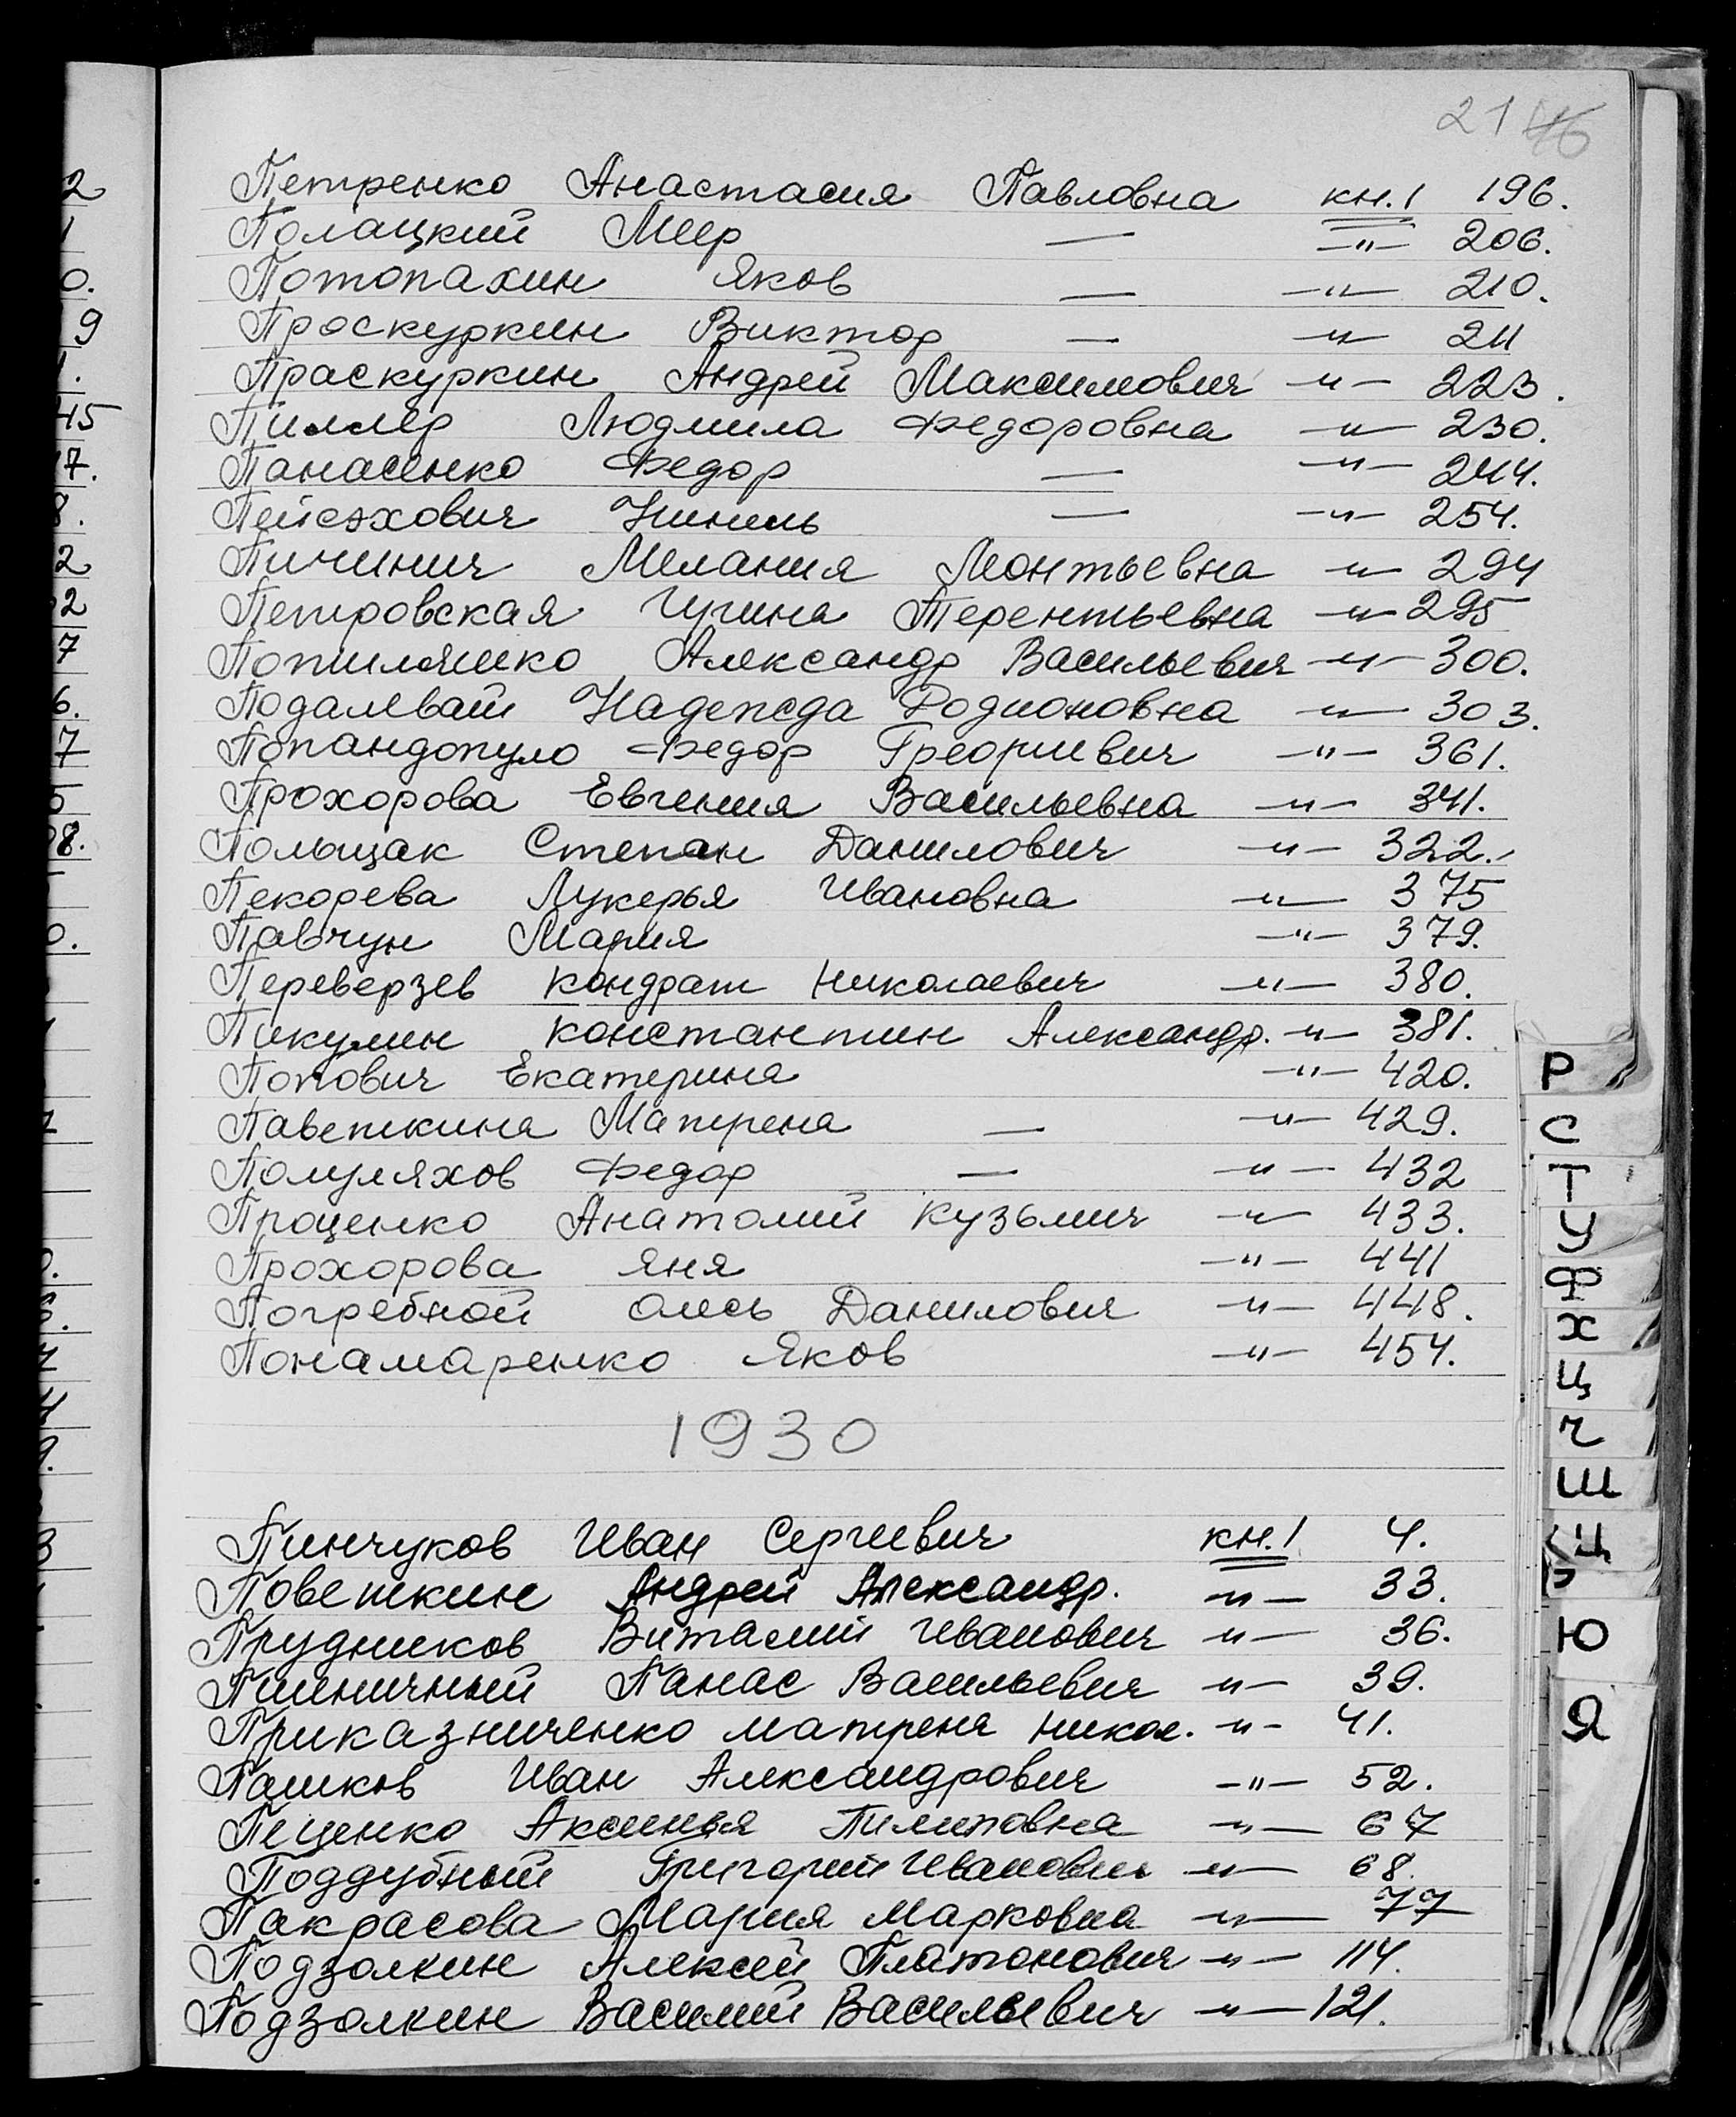 21 46
Петренко Анастасия Павловна кн.1 196.
Полацкий Меер — —"— 206.
Потопахин Яков — —"— 210.
Проскуркин Виктор — —"— 211
Праскуркин Андрей Максимович —"— 223.
Пиллер Людмила Федоровна —"— 230.
Панасенко Федор — —"— 244.
Пейсахович Нинель — —"— 254.
Пичинич Мелания Леонтьевна —"— 294
Петровская Терентьевна —"— 295
Александр Васильевич —"— 300.
Надежда Родионовна —"— 303.
Попандопуло Федор Греориевич —"— 361.
Прохорова Евгения Васильевна —"— 341.
Польщак Степан Данилович —"— 322.
Пекорева Лукерья Ивановна —"— 375
Павчун Мария —"— 379.
Переверзев Кондрат Николаевич —"— 380.
Пикулин Константин Александр. —"— 381.
Попович Екатерина —"— 420.
Паветкина Матрена — —"— 429.
Полуляхов Федор — —"— 432
Проценко Анатолий Кузьмич —"— 433.
Прохорова Яня —"— 441
Погребной Олесь Данилович —"— 448.
Понамаренко Яков —"— 454.
1930
Пинчуков Иван Сергиевич кн.1 4.
Поветкин Андрей Александр. —"— 33.
Прудников Виталий Иванович —"— 36.
Пшеничный Панас Васильевич —"— 39.
Приказниченко Матрена Никол. —"— 41.
Пашков Иван Александрович —"— 52.
Пеценко Аксинья Пилиповна —"— 67
Поддубный Григорий Иванович —"— 68.
Пакрасова Мария Марковна —"— 77
Подзолкин Алексей Платонович —"— 114.
Подзолкин Василий Васильевич —"— 121.
Р
С
Т
У
Ф
Х
Ц
Ч
Ш
Щ
Э
Ю
Я